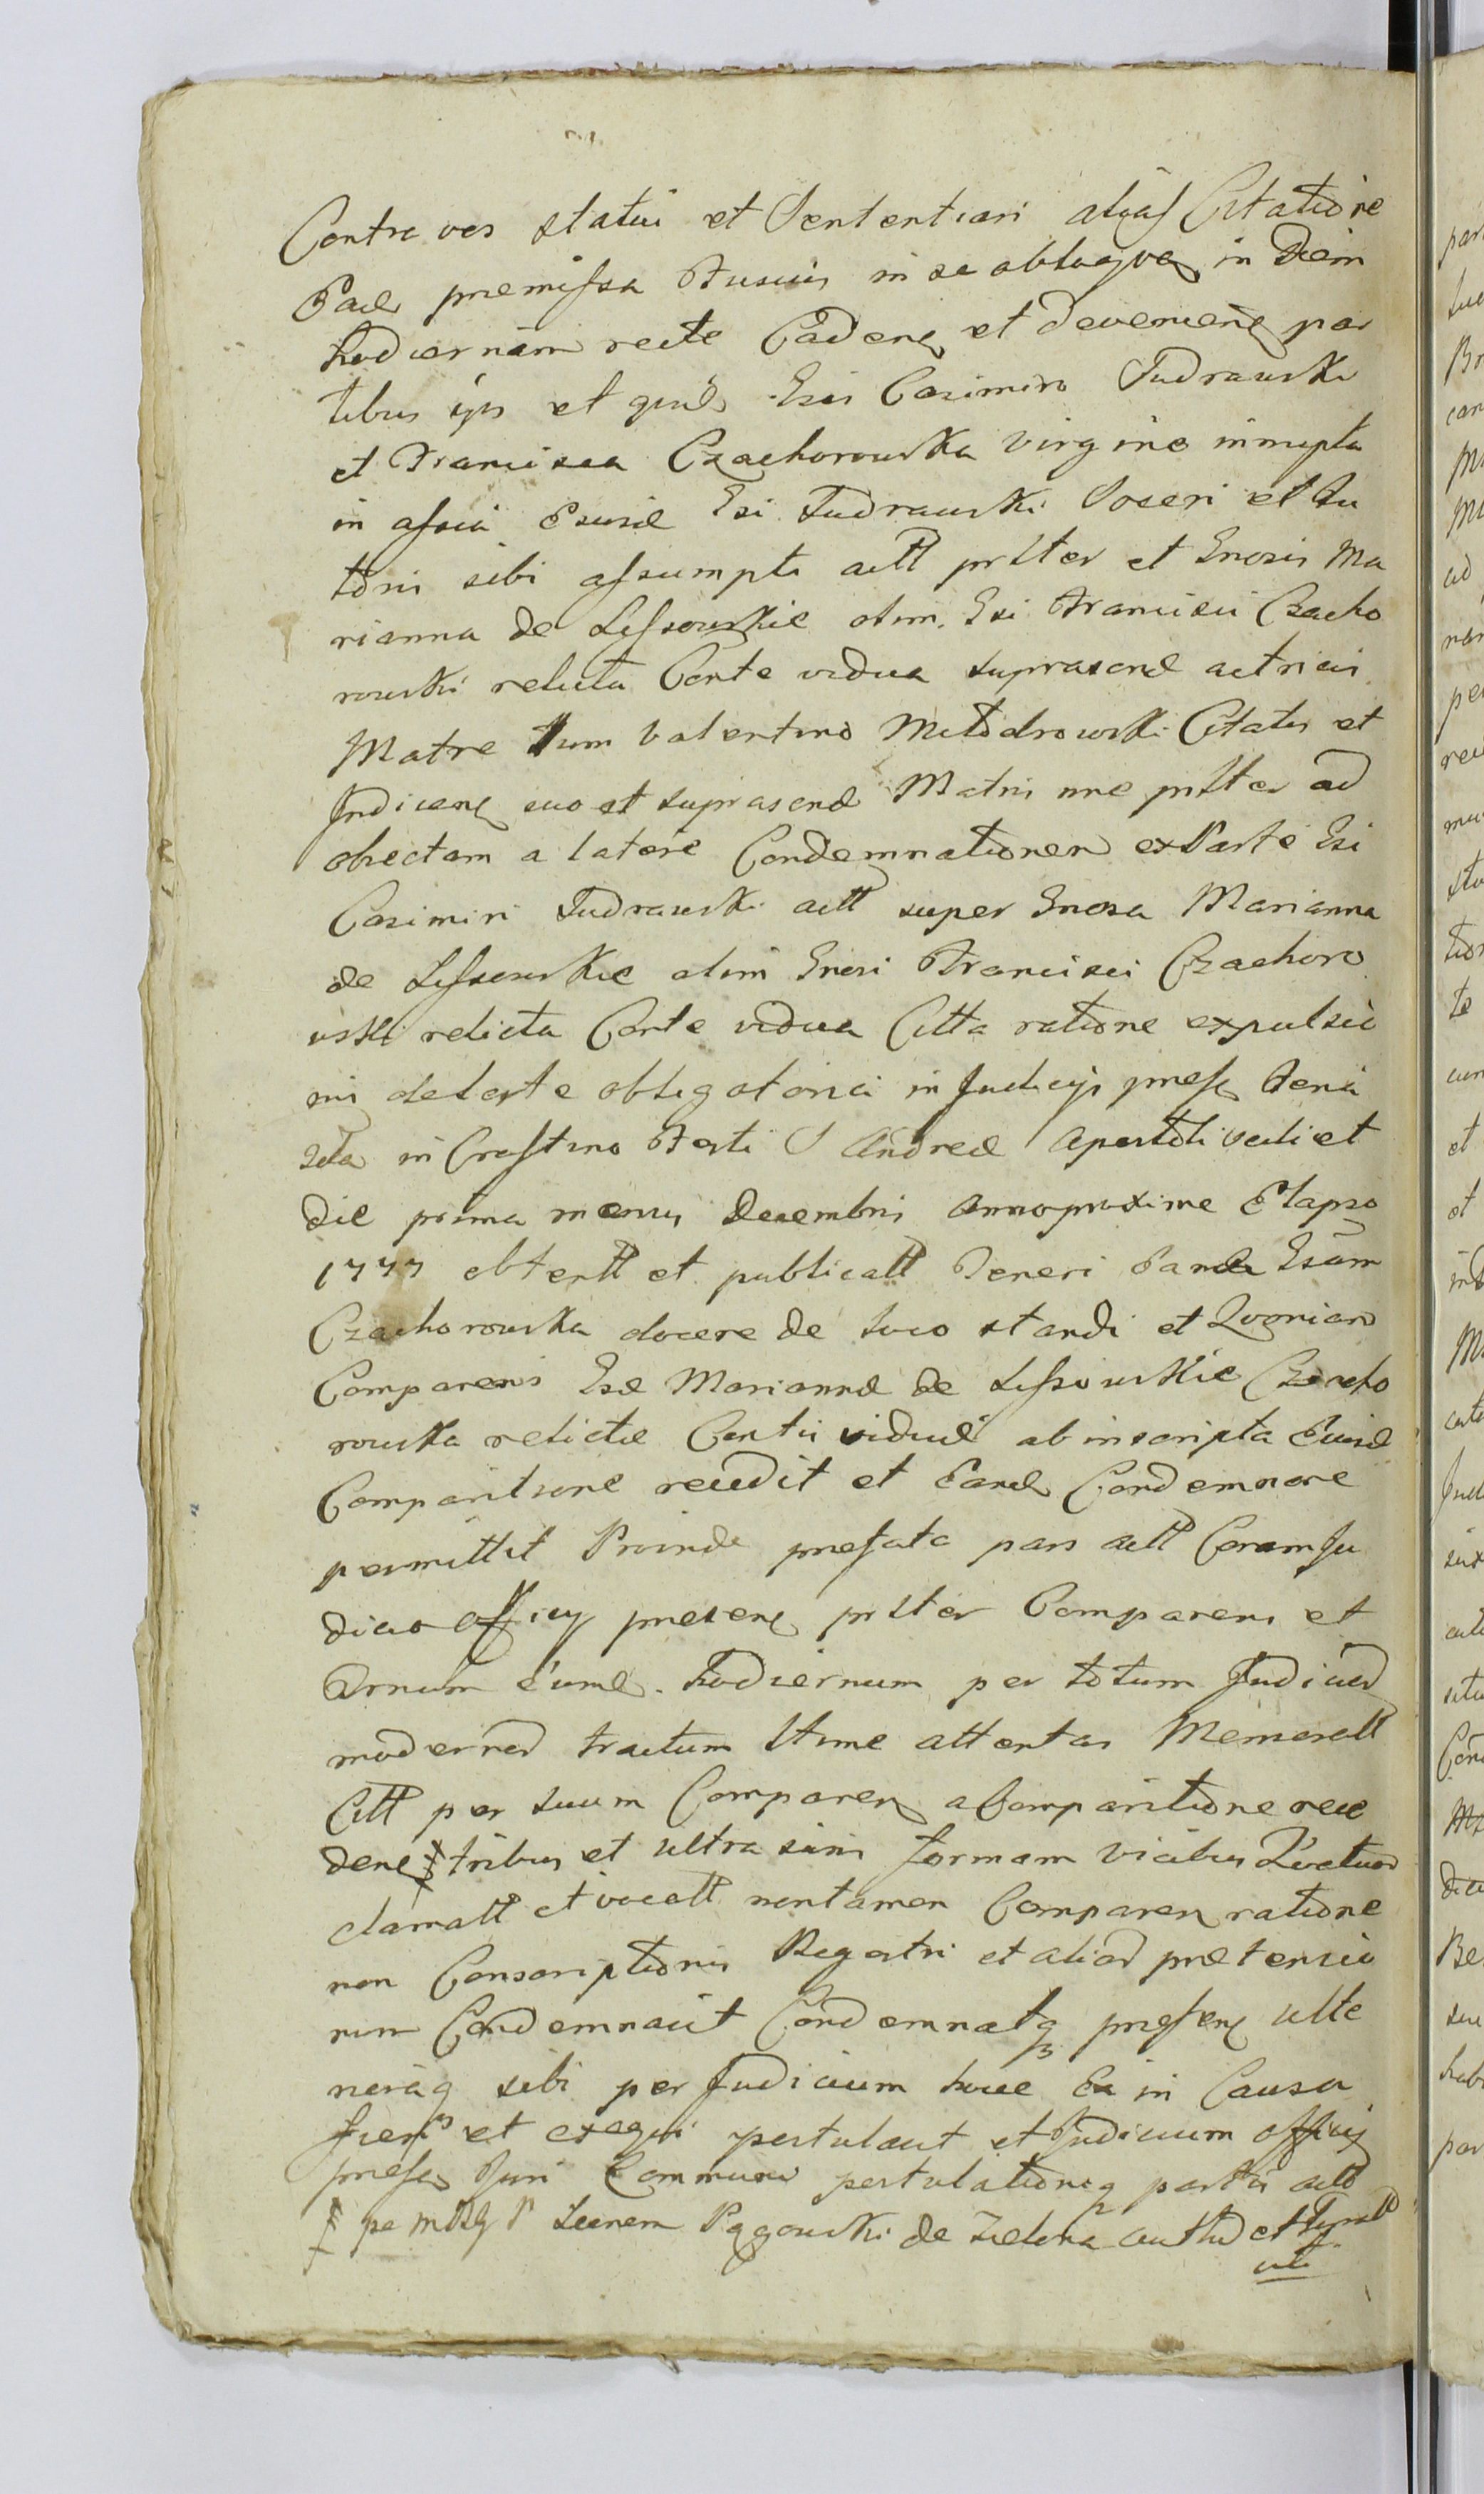 Contra vos statui et Sententiari aliās Citatione
Pace premissa fusius in se obloquen in Diem
hodiernam recte Caden et devenien par
tibus ips et quid Gsis Casimiro Sudrawski
et Francisca Czachorowska virgine innupta
in assia Eiusd Gsi Sudrawski Soceri et Tu
toris sibi assumpti actt prstter et Gnosis Ma
rianna de Lessowskie olim Gsi Francisci Czacho
rowski relicta Conte vidua suprascrd actricis
Matre tum Valentino Citatis et
Judicen suo et suprascrd Matris nne prstter ad
obiectam a latere Condemnationem ex Parte Gsi
Casimiri Sudrawski actt super Gnosa Marianna
de Lessowskie olim Gnosi Francisci Czachoro
wski relicta Conte vidua Citta ratione expulsio
nis de obligatoria in Judicijs pres feria
2da in Crastino Festi S Andreæ Apostoli videlicet
die prima mensis Decembris Anno proxime Elapso
1777 obtentt et publicatt Teneri Pandi Gsam
Czachorowska docere de loco standi et Quoniam
Comparens Gsæ Mariannæ de Lessowskie Czacho
rowska relictæ Contis viduæ ab inscripta Eiusd
Comparitione recedit et Eand Condemnare
permittit Proinde prefata pars actt Coram Ju
dicio Officij presen prstter Comparens et
Ornum eund hodiernum per totum Judiciar
modernor tractum ttime attentas Memoratt
Citt per suum Comparen a Comparitione rece
den ‡ tribus et ultra iuris formam vicibus Quatuor
clamatt et vocatt non tamen Comparen ratione
non Conscriptionis Regestri et alior prætensio
num Condemnavit Condemnatq presen ulte
riusq sibi per Judicium hocce Ea in Causa
fieri et exequi postulavit et Judicium Officij
presen Juri Communi postulationiq partis actt
‡ pe Leonem Pągowski de Zielona
uti